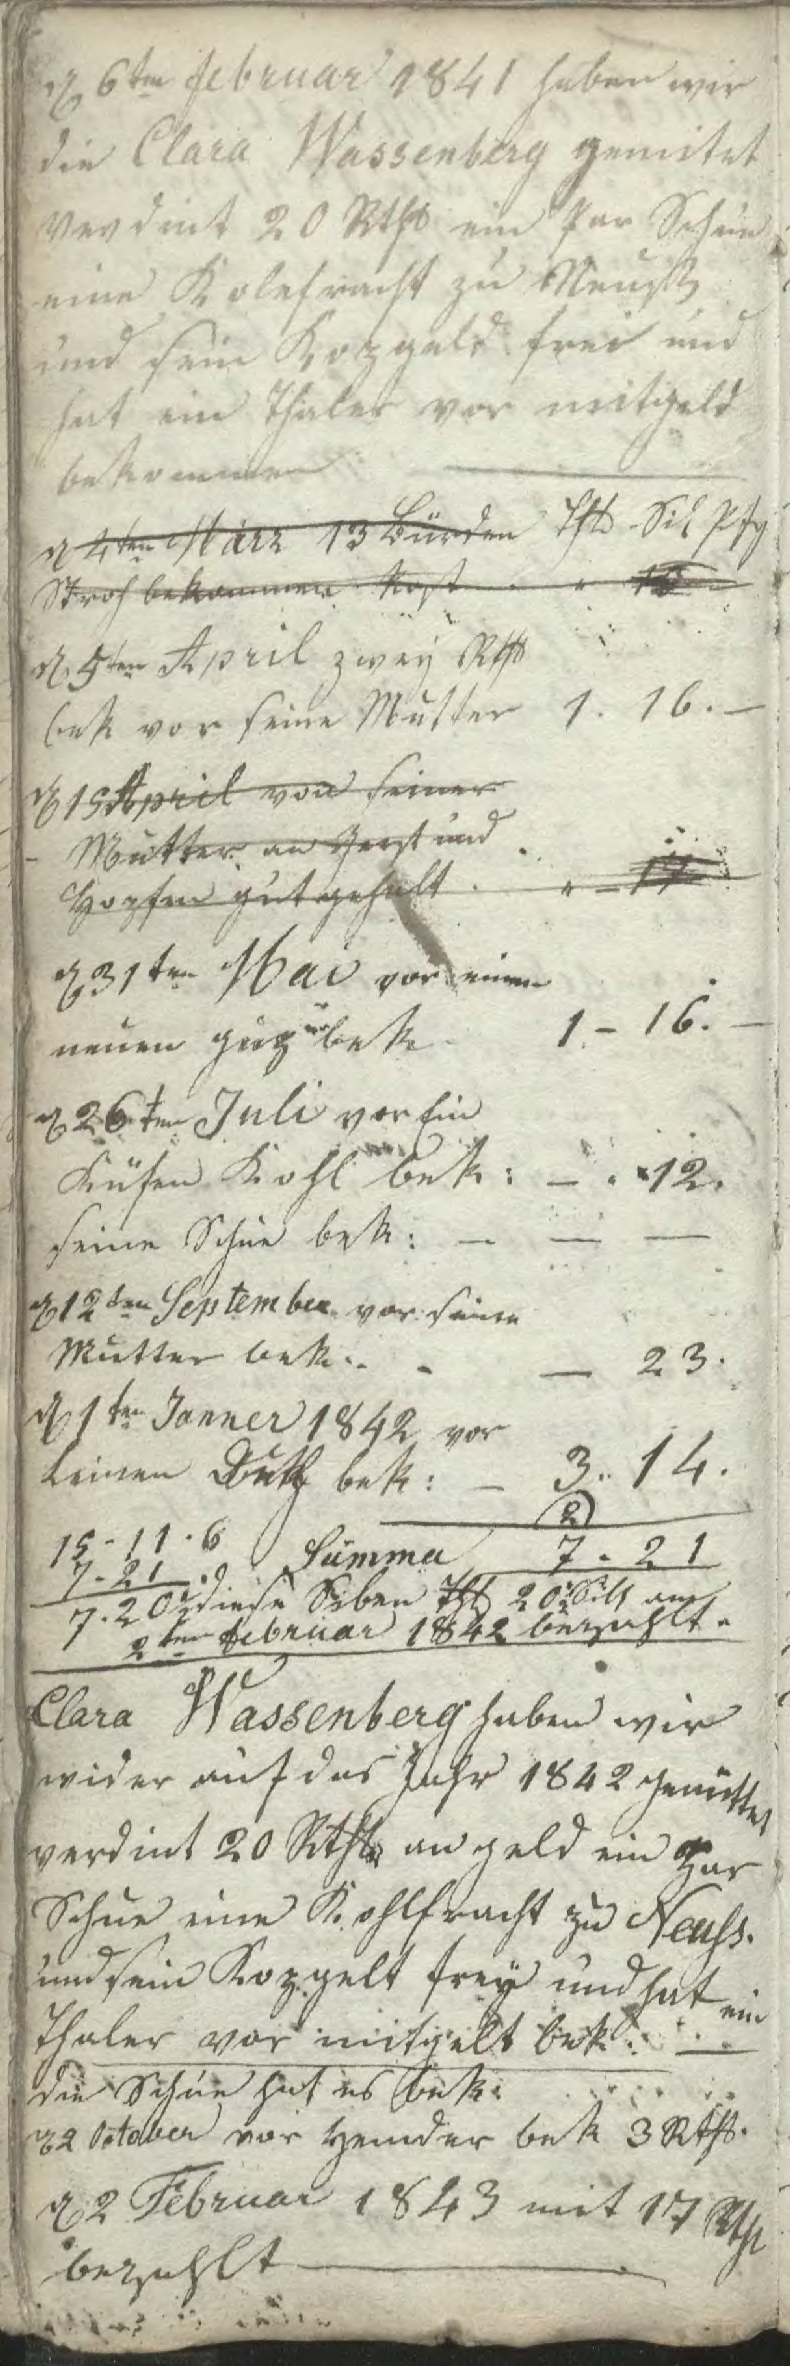 d 6ten februar 1841 haben wir
die Clara Wassenberg gemitet
verdint 20 Rthl ein Par Schue
eine Kolefracht zu Neuß
und sein Kopgeld frei und
hat ein Thaler vor mitgeld
bekommen
d 4ten März 13 Bürden Thl Sil Pfg
Stroh bekommen kost " 13
d 5ten April zwey Rthl
bek vor seine Mutter 1. 16. —
d 15 April von seiner
Mutter an Gerst und
Hopfen gut gehalt " – 17
d 31ten Mai vor einen
neuen bek 1 – 16. —
d 26ten Juli vor Ein
Küfen Kohl bek: — . 12.
seine Schue bek: — — —
d 12ten September vor seine
Mutter bek. — 23.
d 1ten Janner 1842 vor
leinen Duch bek: — 3. 14.
2
15 - 11 - 6 Summa 7 - 21
7 - 21 . 9
7 . 20 diese Siben Thl 20 Silb am
2ten februar 1842 bezahlt.
Clara Wassenberg haben wir
wider auf das Jahr 1842 gemittet
verdint 20 Rthl an geld ein Par
Schue eine Kohlfracht zu Neuss.
und sein Kopgelt frey und hat ein
Thaler vor mitgelt bek: —
die Schue hat es bek:
d 2 October vor Hemder bek 3 Rthl.
d 2 Februar 1843 mit 17 Rthl
bezahlt